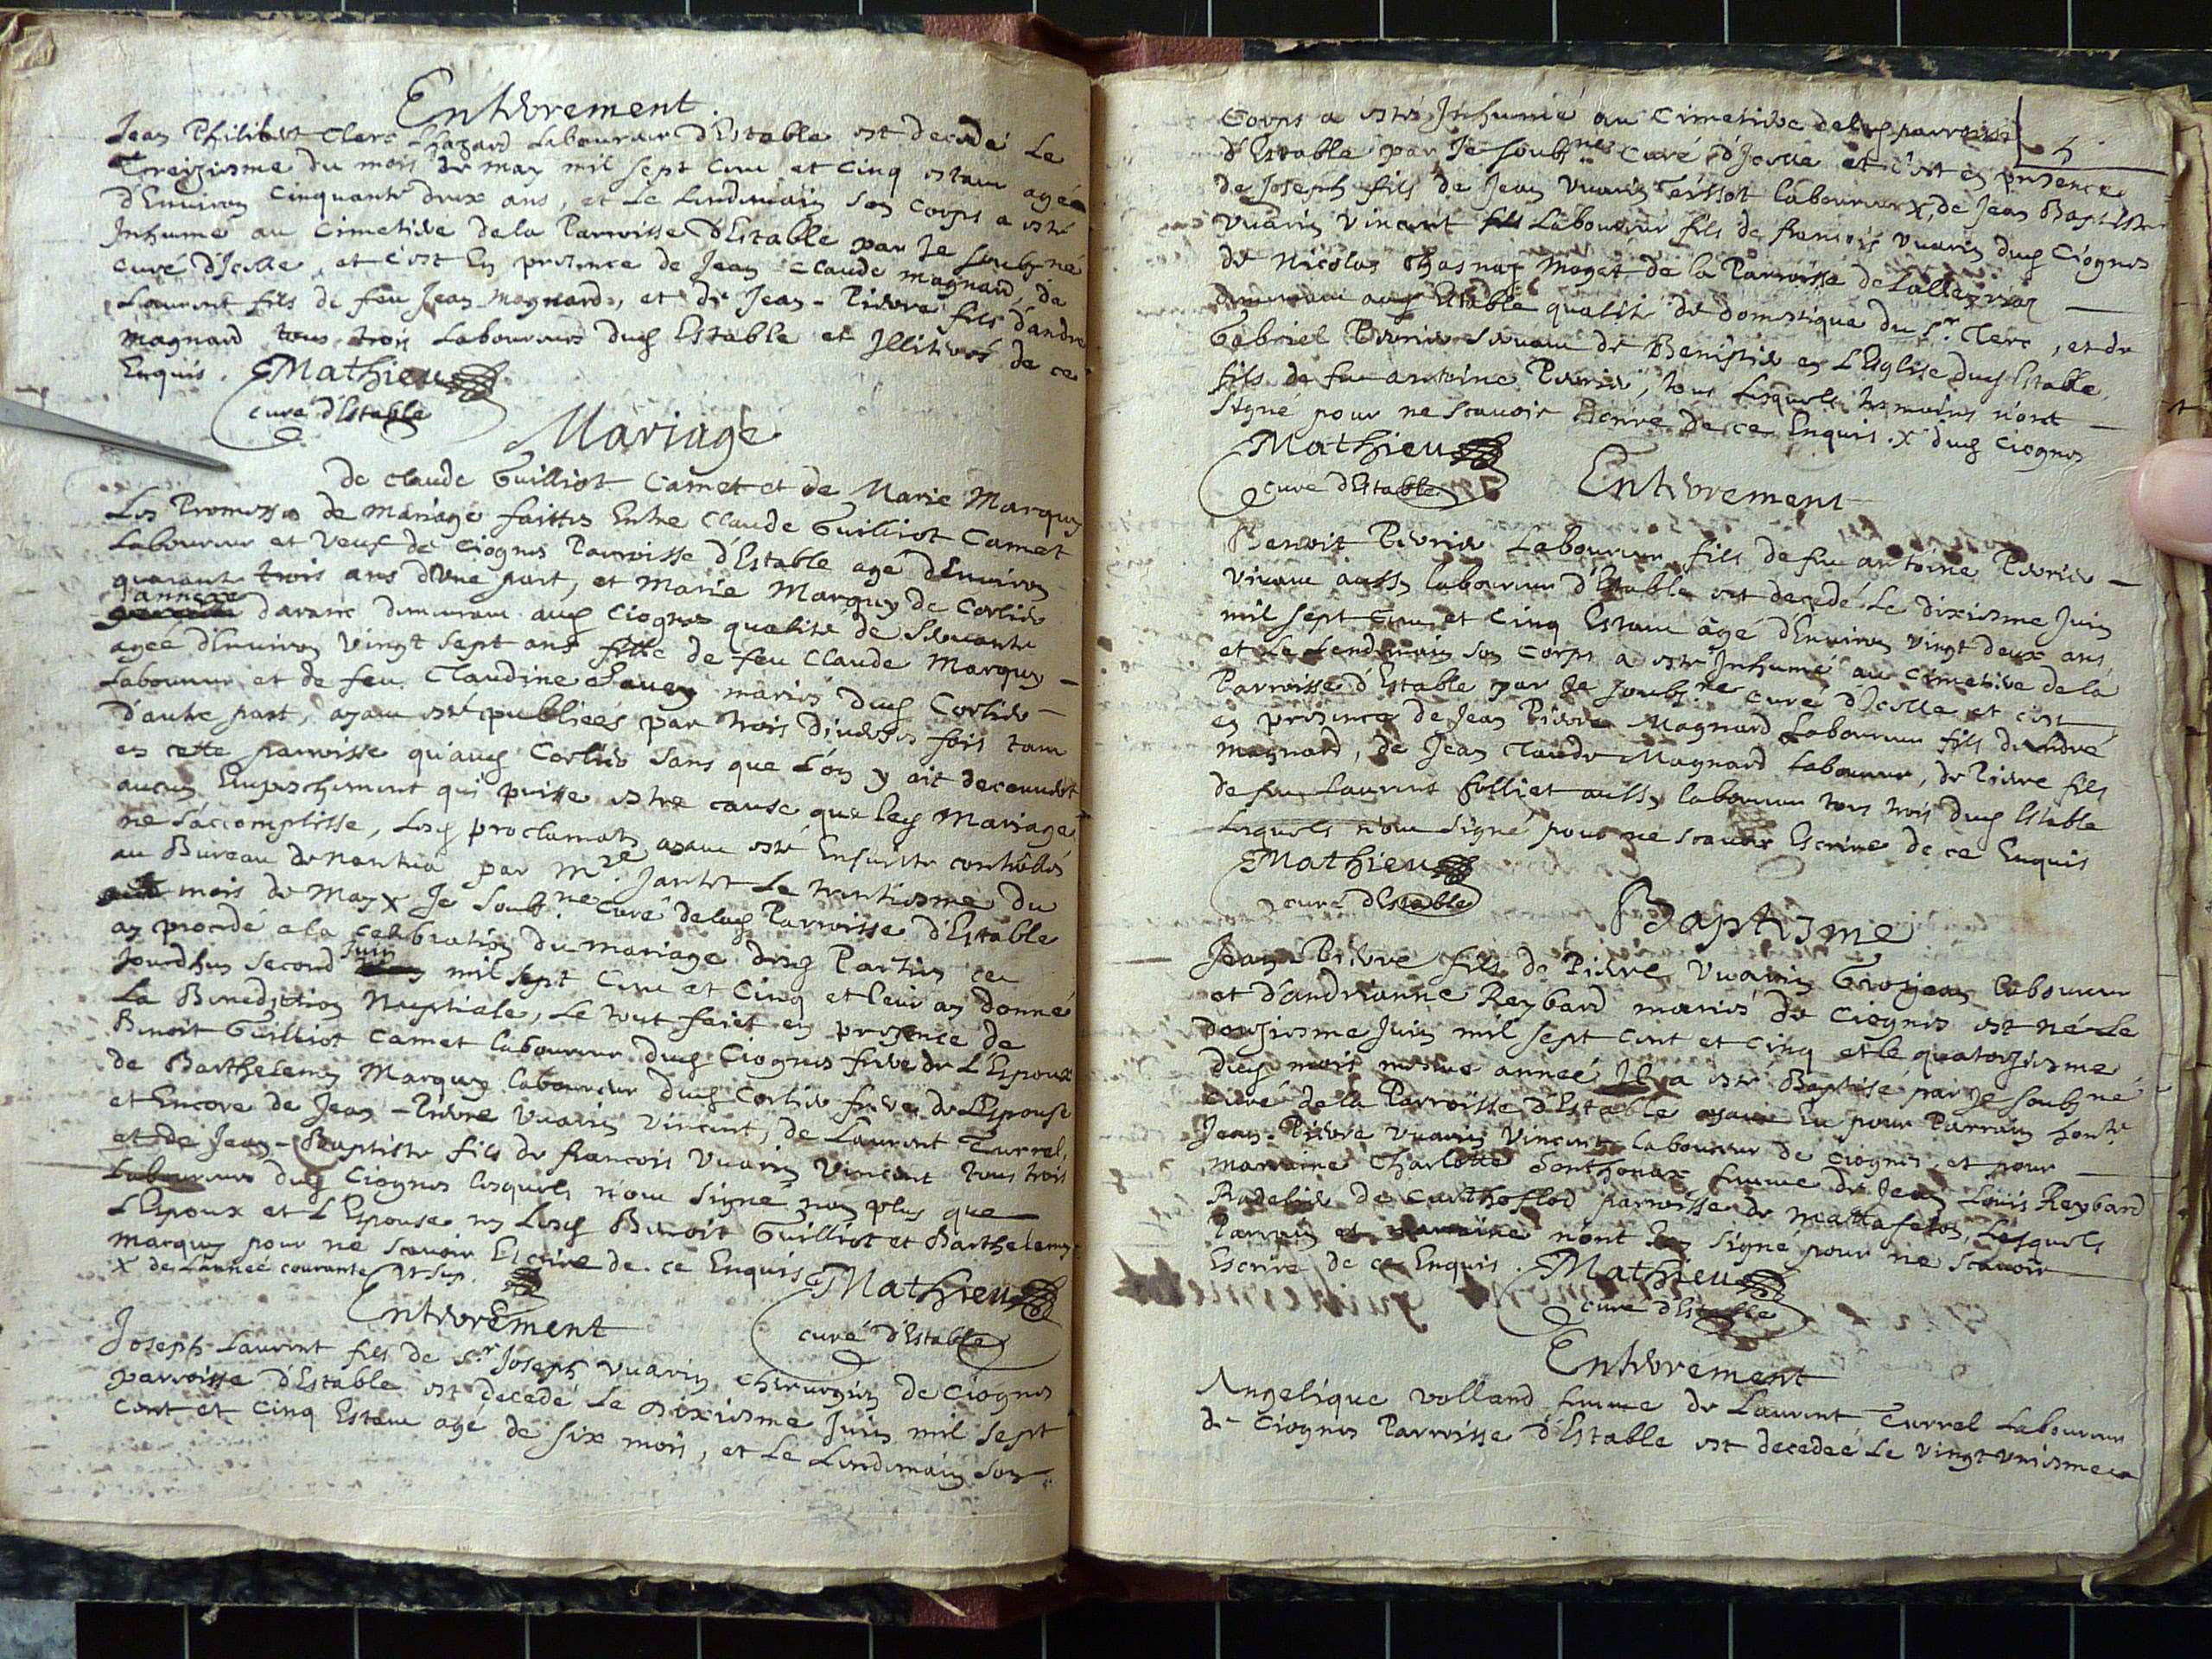 Enterrement.
Jean Philibert Clerc Chazard Laboureur d'Estable est decedé Le
Treiziesme du mois de may mil sept Cent et Cinq estant agée
d'Environ Cinquante deux ans, et Le Lendemain son Corps a esté
Inhumé au Cimetiere dela Parroisse d'Estable par Je soubzné
curé d'Icelle, et c'est En presence de Jean Claude magnard, de
Laurent fils de feu Jean magnard, et de Jean-Pierre fils d'andre
magnard tous trois Laboureurs dud Estable et Illiterés de ce
Enquis. Mathieu
curé d'Estable
Mariage
de Claude Guilliot Camet et de Marie Marquy
Les Promesses de mariage faittes Entre Claude Guilliot Camet
Laboureur et veuf de Ciognes Parroisse d'Estable agé d'Environ
quarante trois ans d'Une part, et Marie Marquy de Corlier
annexe
daranc demeurant aud Ciognes qualité de Servante
agée d'Environ vingt sept ans fille de feu Claude Marquy
Laboureur et de feu Claudine Chavey mariés dud Corlier
d'autre part, ayant esté publiées par trois diverses fois tant
en cette parroisse qu'aud Corlier sans que L'on y ait decouvert
aucun Empeschement qui puisse estre cause que led Mariage
ne s'accomplisse, Lesd proclamats ayant esté Ensuitte contrôllés
au Bureau de nantua par Mre. Jantet Le trentiesme du
mois de May x Je soub.né Curé delad Parroisse d'Estable
ay procedé a la celebration du mariage desd Parties ce
Juin
Jourdhuy second mil sept Cent et Cinq et leur ay donné
La Benediction Nuptiale, Le tout faict en presence de
Benoit Guilliot Camet laboureur dud Ciognes frere de L'Epoux
de Barthelemy Marquy laboureur dud Corlier frere de L'Epouse
et Encore de Jean-Pierre Vuarin Vincent, de Laurent Turrel,
et de Jean-Baptiste fils de francois Vuarin Vincent tous trois
Laboureurs dud Ciognes lesquels n'ont signé non plus que
L'Epoux et L'Epouse ny Lesd Benoit Guilliot et Barthelemy
marquy pour ne scavoir Escrire de ce Enquis. Mathieu
x de L'année courante Ut sup.
curé d'Estable
Enterrement
Joseph-Laurent fils de Sr. Joseph Vuarin Chirurgien de Ciognes
parroisse d'Estable est decedé Le sixiesme Juin mil sept
Cent et Cinq Estant agé de six mois, et Le Lendemain son
5
Corps a esté Inhumé au Cimetiere delad parroisse
d'Estable par Je soubzné curé d'Icelle et c'est en presence
de Joseph fils de Jean Vuarin Teissot laboureur x, de Jean Baptiste
Vuarin Vincent fils Laboureur fils de francois Vuarin dud Ciognes
de Nicolas Chasnaz Moget de la Parroisse de Lalleyriaz
demeurant aud Estable qualité de domestique du Sr. Clerc, et de
Gabriel Perrier servant de Benistier en L'Eglise dud Estable
fils de feu antoine Perrier, tous Lesquels temoins n'ont
signé pour ne scavoir Ecrire de ce Enquis. x dud Ciognes
Mathieu
curé d'Estable
Enterrement
Benoit Perrier Laboureur fils de feu antoine Perrier
vivant aussy laboureur d'Estable est decedé Le dixiesme Juin
mil sept Cent et Cinq Estant âgé d'Environ vingt deux ans
et Le Lendemain son Corps a esté Inhumé au Cimetiere dela
Parroisse d'Estable par Je soubzné curé d'Icelle et c'est
en presence de Jean Pierre Magnard Laboureur fils d'André
magnard, de Jean Claude Magnard Laboureur, de Pierre fils
de feu Laurent folliet aussy laboureur tous trois dud Estable
Lesquels n'ont signé pour ne scavoir Escrire de ce Enquis
Mathieu
curé d'Estable
Baptesme
Jean-Pierre fils de Pierre Vuarin Grosjean laboureur
et d'andrianne Reybard mariés de Ciognes est né Le
douziesme Juin mil sept Cent et Cinq et le quatorziesme
dud mois mesme année Il a esté Baptisé par Je soubzné
curé de la Parroisse d'Estable ayant Eu pour Parrain honte.
Jean-Pierre Vuarin Vincent laboureur de Ciognes, et pour
marraine Charlotte Sonthonax femme de Jean Louis Reybard
de parroisse de Mattafelon, Lesquels
Parrain et marraine n'ont signé pour ne scavoir
Escrire de ce Enquis. Mathieu
curé d'Estable
Enterrement
Angelique volland femme de Laurent Turrel Laboureur
de Ciognes Parroisse d'Estable est decedée Le vingt uniesme